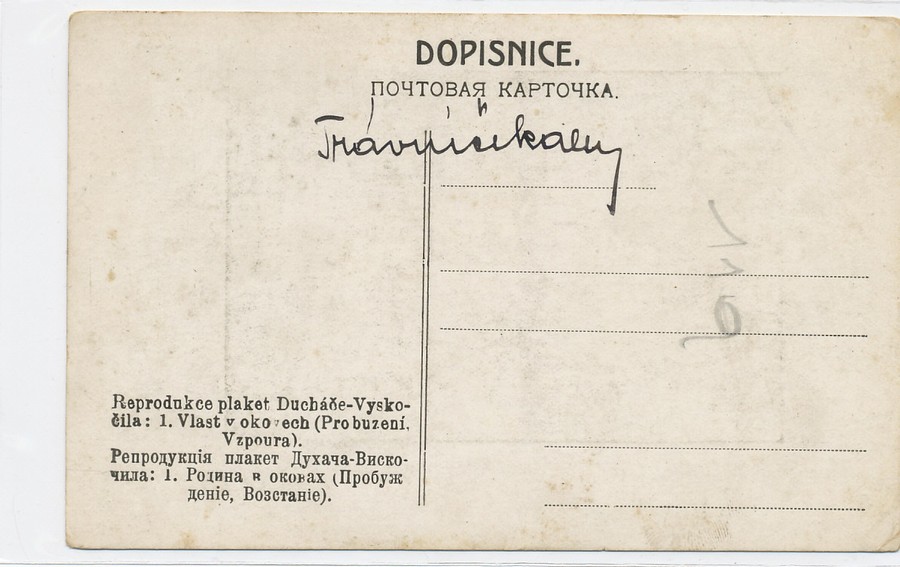 DOPISNICE.
ПОЧТОВАЯ КАРТОЧКА.
Reprodukce plaket Ducháče-Vysko-
čila: 1. Vlast v okovech (Probuzení,
Vzpoura).
Репродукція плакет Духача-Виско-
чила: 1. Родина в оковах (Пробуж
деніе, Возстаніе).